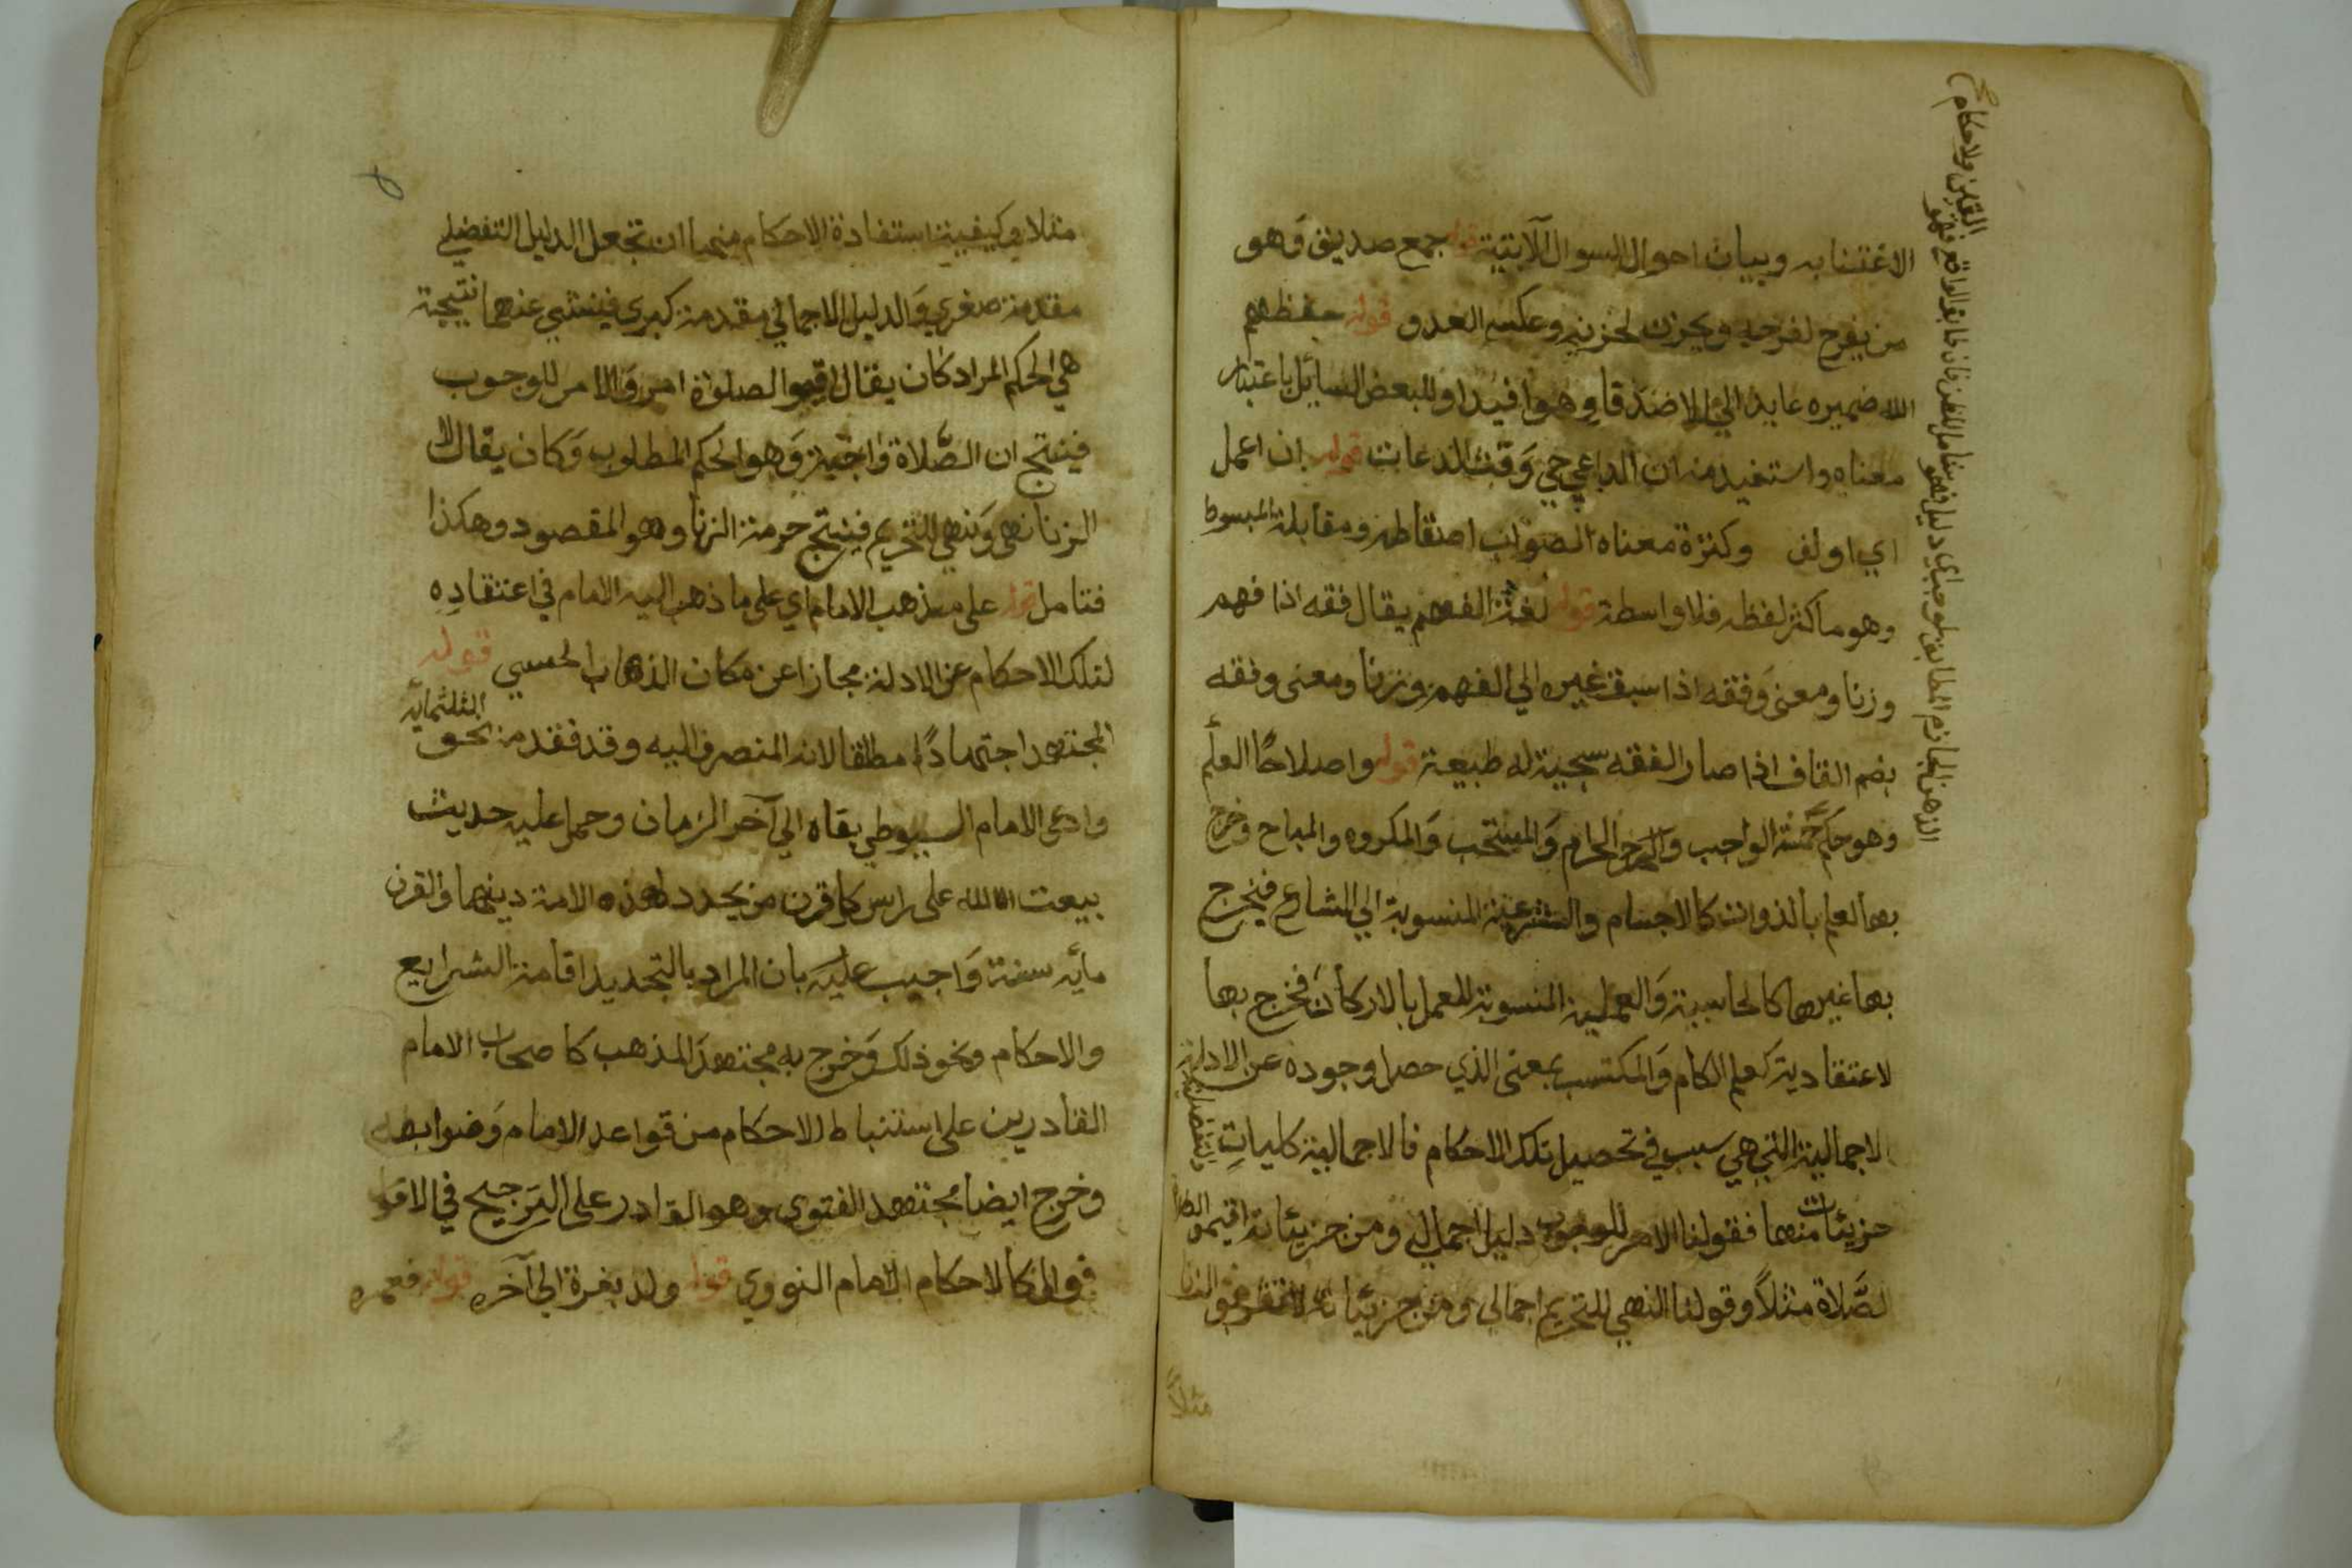 الاغتنا به وبيان احوال السوال الآتية قوله جمع صديق وَهو
من يفرح لفرحه ويحزن لحزنه وعكسه العدو قوله حفظهم
الله ضميره عايد الي الاصدقا وهو افيد او للبعض السائل باعتبار
معناه واستفيد منه ان الداعي حي وَقت الدعا قوله ان اعمل
اي اولف وكثرة معناه الصواب اسقاطه ومقابلة المبسوط
وهو ما كثر لفظه فلا واسطة قوله لغة الفهم يقال فقه اذا فهم
وزنا ومعنى وَفقه اذا سبق غيره الي الفهم وزنا ومعنى وفقه
بضم القاف اذا صار الفقه سجية له طبيعة قوله واصلاحًا العلم
وهو حكم الواجب الحرام وَالمستحب وَالمكروه والمباح وخرج
بها العلم بالذوات كالاجسام والشرعية المنسوبة الي الشارع فيخرج
بها غيرها كالحاسبية وَالعملية المنسوبة للعمل بالاركان فخرج بها
لاعتقادية كعلم الكلام وَالمكتسب بمعنى الذي حصل وجوده عن الادلة
لاجمالية التي هي سبب في تحصيل تلك الاحكام فالاجمالية كليات
جزيئات منها فقولنا الامر للوجوب دليل اجمالي ومن جزيئاته اقيموا
لصَّلاة مثلاً وقولنا النهي للتحريم اجمالي ومن جزيئاته لا تقربوا الزنا
مثلاً
مثلا وكيفية استفادة الاحكام منها ان تجعل الدليل التفضلي
مقدمة صغري وَالدليل الاجمالي مقدمة كبري فينشي عنهما نتيجة
هي الحكم المراد كان يقال اقيموا الصلوٰة امر وَالامر للوجوب
فينتج ان الصَّلاة واجبة وَهو الحكم المطلوب وَكان يقال لا
الزنا نهى وَنهي للتحريم فينتج حرمة الزنا وهو المقصود وهكذا
فتامل قوله على مذهب الامام اي على ما ذهب اليه الامام في اعتقادِه
لتلك الاحكام عن الادلة مجازا عن مكان الذهاب الحسي قوله
المجتهد اجتهادًا مطلقا لانه المنصرف اليه وقد فقد من نحو الثلثمايه
وادعى الامام السيوطي بقاه الي آخر الزمان وحمل عليه حديث
يبعث الله على راس كل قرن من يجدد لهذه الامة دينها والقرن
مايه سنة وَاجيب عليه بان المراد بالتجديد اقامة الشرايع
والاحكام ونحو ذلك وَخرج به مجتهد المذهب كاصحاب الامام
القادرين على استنباط الاحكام من قواعد الامام وَضوابطه
وخرج ايضا مجتهد الفتوى وهو القادر على الترجيح في الاقوا
الامام النووي قوله ولد بغزة الي آخره قوله